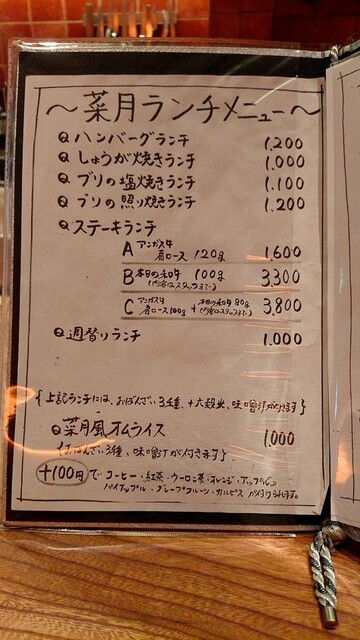 ～菜月ランチメニュー～
ハンバーグランチ 1,200
しょうが焼きランチ 1.000
ブリの塩焼きランチ 1.100
ブリの照り焼きランチ 1.200
ステーキランチ
A アンガス牛 肩ロース 120g 1,600
B 本日の和牛 100g (内容はスタッフまで) 3,300
C アンガス牛 肩ロース100g + 本日の和牛80g (内容はスタッフまで) 3,800
週替りランチ 1.000
{上記ランチには、おばんざい3種、+六穀米、味噌汁が付きます}
菜月風オムライス 1,000
{おばんざい3種、味噌汁が付きます}
+100円で コーヒー・紅茶・ウーロン茶・オレンジ・アップル
パイナップル・グレープフルーツ・カルピス が付けられます。